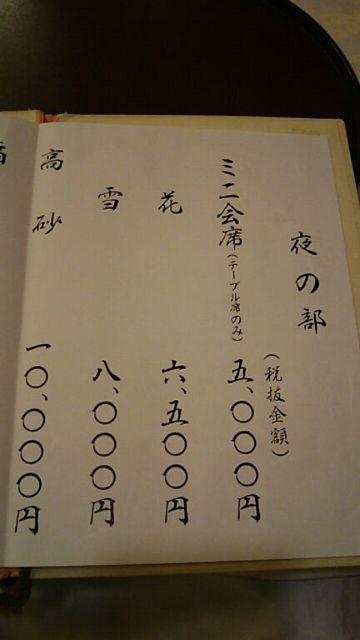 夜の部
(税抜金額)
ミニ会席(テーブル席のみ) 五、〇〇〇円
花 六、五〇〇円
雪 八、〇〇〇円
高砂 一〇、〇〇〇円